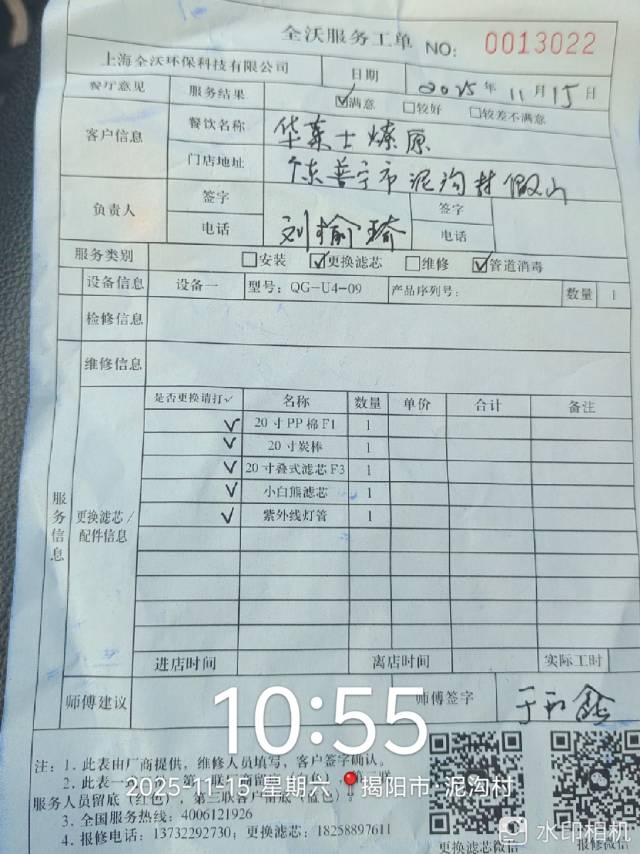 全沃服务工单 NO: 0013022
上海全沃环保科技有限公司 日期 2025年11月15日
餐厅意见 服务结果 ☑满意 □较好 □较差不满意
客户信息 餐饮名称 华莱士燎原
门店地址 广东普宁市泥沟村假山
负责人 签字 刘榆琦 签字
电话 电话
服务类别 □安装 ☑更换滤芯 □维修 ☑管道消毒
设备信息 设备一 型号: QG-U4-09 产品序列号: 数量 1
检修信息
维修信息
服务信息
更换滤芯/配件信息
是否更换请打✓ 名称 数量 单价 合计 备注
✓ 20寸PP棉F1 1
✓ 20寸炭棒 1
✓ 20寸叠式滤芯F3 1
✓ 小白熊滤芯 1
✓ 紫外线灯管 1
进店时间 离店时间 实际工时
师傅建议 师傅签字
10:55
注: 1. 此表由厂商提供, 维修人员填写, 客户签字确认。
2. 此表一
2025-11-15 星期六 揭阳市·泥沟村
服务人员留底（红色）, 第三联客户留底（蓝色）。
3. 全国服务热线: 4006121926
4. 报修电话: 13732292730; 更换滤芯: 18258897611
更换滤芯微信 报修微信
水印相机